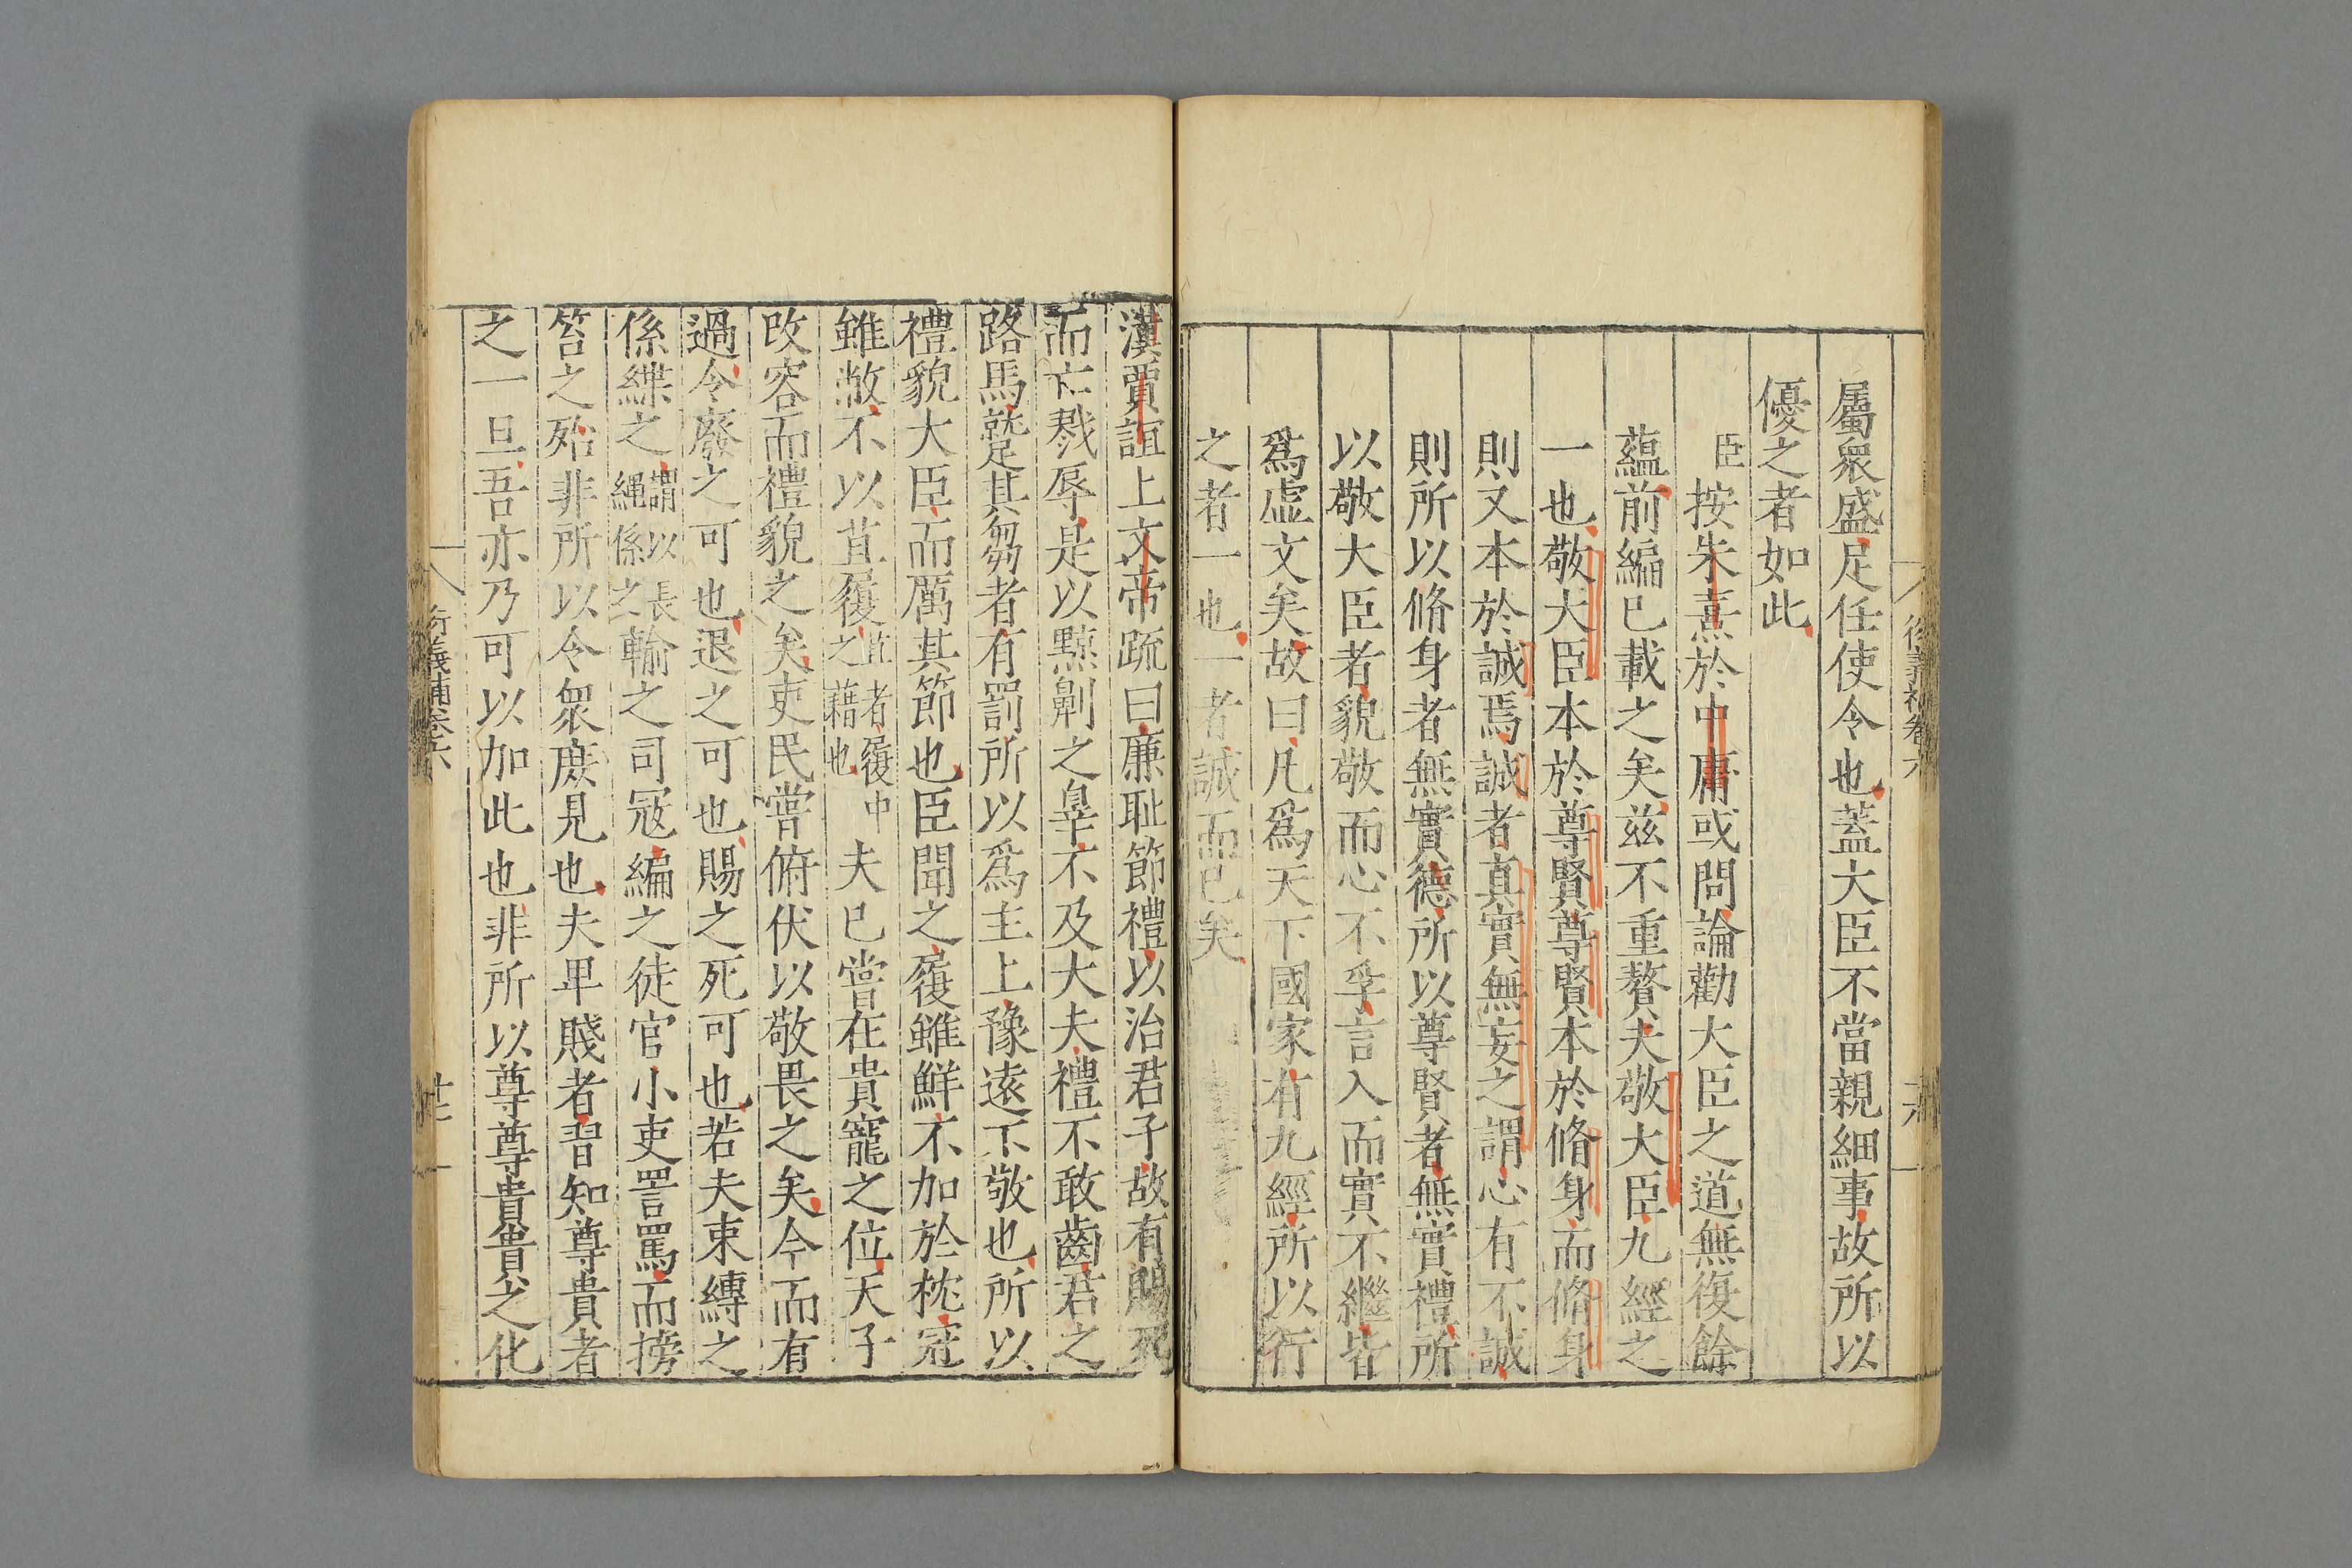 屬衆盛足任使令也蓋大臣不當親細事故所以
優之者如此
臣按朱熹於中庸或問論勸大臣之道無復餘
蘊前編已載之矣兹不重贅夫敬大臣九經之
一也敬大臣本於尊賢尊賢本於脩身而脩身
則又本於誠焉誠者真實無妄之謂心有不誠
則所以脩身者無實德所以尊賢者無實禮所
以敬大臣者貌敬而心不孚言入而實不繼皆
爲虛文矣故曰凡爲天下國家有九經所以行
之者一也一者誠而已矣
漢賈誼上文帝疏曰廉耻節禮以治君子故有賜死
而亡戮辱是以黥劓之辠不及大夫禮不敢齒君之
路馬蹵其芻者有罰所以爲主上豫遠不敬也所以
禮貌大臣而厲其節也臣聞之履雖鮮不加於枕冠
雖敝不以苴履苴者履中之藉也夫已嘗在貴寵之位天子
改容而禮貌之矣吏民嘗俯伏以敬畏之矣今而有
過令廢之可也退之可也賜之死可也若夫束縛之
係緤之謂以長繩係之輸之司寇編之徒官小吏詈罵而搒
笞之殆非所以令衆庶見也夫卑賤者習知尊貴者
之一旦吾亦乃可以加此也非所以尊尊貴貴之化
衍義補卷六